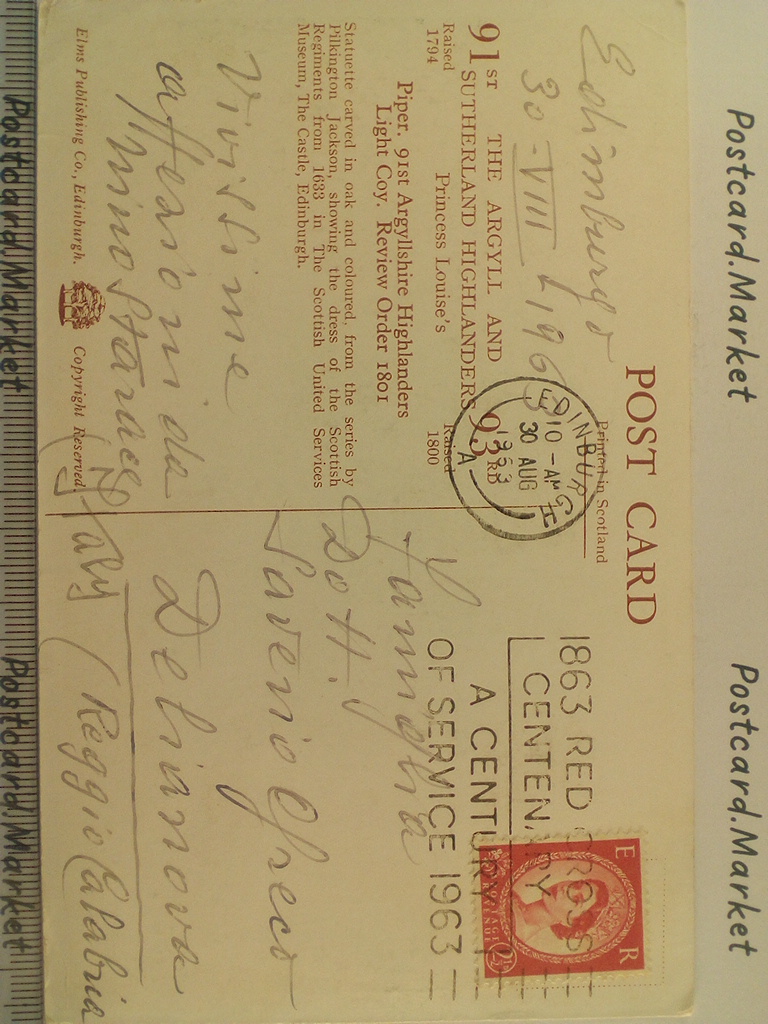 POST CARD
Printed in Scotland
Edimburgo
30-VIII-1963
91ST THE ARGYLL AND SUTHERLAND HIGHLANDERS 93RD
Raised 1794
Princess Louise's
Raised 1800
Piper, 91st Argyllshire Highlanders
Light Coy. Review Order 1801
Statuette carved in oak and coloured, from the series by
Pilkington Jackson, showing the dress of the Scottish
Regiments from 1633 in The Scottish United Services
Museum, The Castle, Edinburgh.
Vivissime
affesioni da
Mino
Elms Publishing Co., Edinburgh.
Copyright Reserved
EDINBURGH
10 - AM
30 AUG
1963
A
1863 RED CROSS
CENTENARY
A CENTURY
OF SERVICE 1963
E R
POSTAGE
REVENUE
2½
Famiglia
Dott.
Saverio Greco
Delianova
(Reggio Calabria)
Italy
Postcard.Market
Postcard.Market
Postcard.Market
Postcard.Market